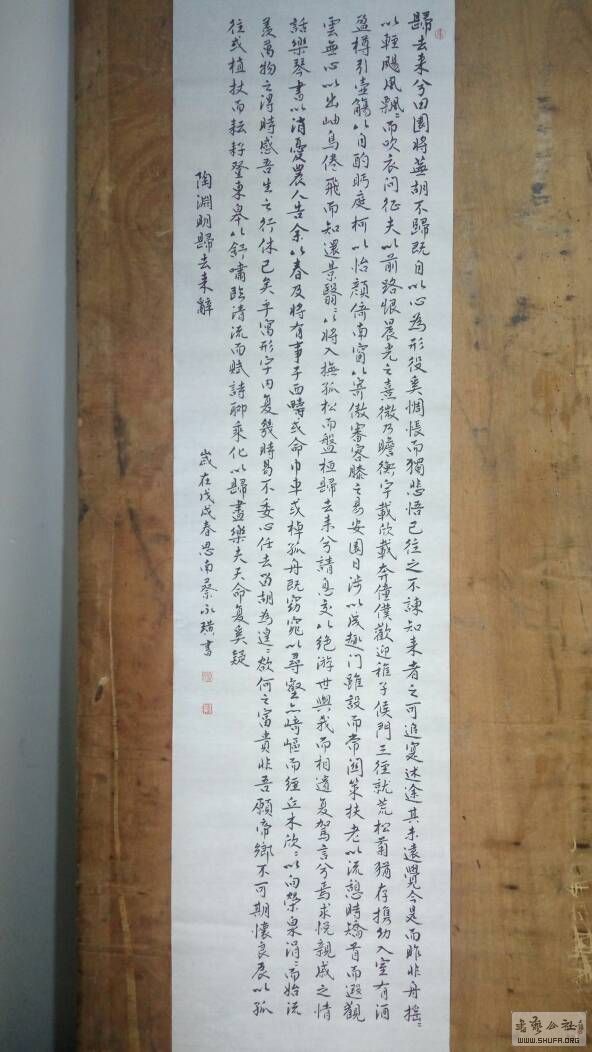 歸去来兮田園將蕪胡不歸既自以心為形役奚惆悵而獨悲悟已往之不諫知来者之可追寔迷途其未遠覺今是而昨非舟摇々
以輕颺風飄々而吹衣问征夫以前路恨晨光之熹微乃瞻衡宇載欣載奔僮僕歡迎稚子候門三徑就荒松菊猶存携幼入室有酒
盈樽引壺觴以自酌眄庭柯以怡顔倚南窗以寄傲審容膝之易安園日涉以成趣门雖設而常関策扶老以流憩時矯首而遐觀
雲無心以出岫鳥倦飛而知還景翳々以將入撫孤松而盤桓歸去来兮請息交以绝游世與我而相遺复駕言兮焉求悦親戚之情
話樂琴書以消憂農人告余以春及將有事乎西疇或命巾車或棹孤舟既窈窕以尋壑亦崎嶇而經丘木欣々以向榮泉涓々而始流
羡萬物之得時感吾生之行休已矣乎寓形宇内复幾時曷不委心任去留胡為遑々欲何之富貴非吾願帝鄉不可期懷良辰以孤
往或植杖而耘耔登東皋以舒嘯臨清流而赋詩聊乘化以歸盡樂夫天命复奚疑
陶淵明歸去来辭
歲在戊戌春思南蔡永璜書
書藝公社
WWW.SHUFA.ORG